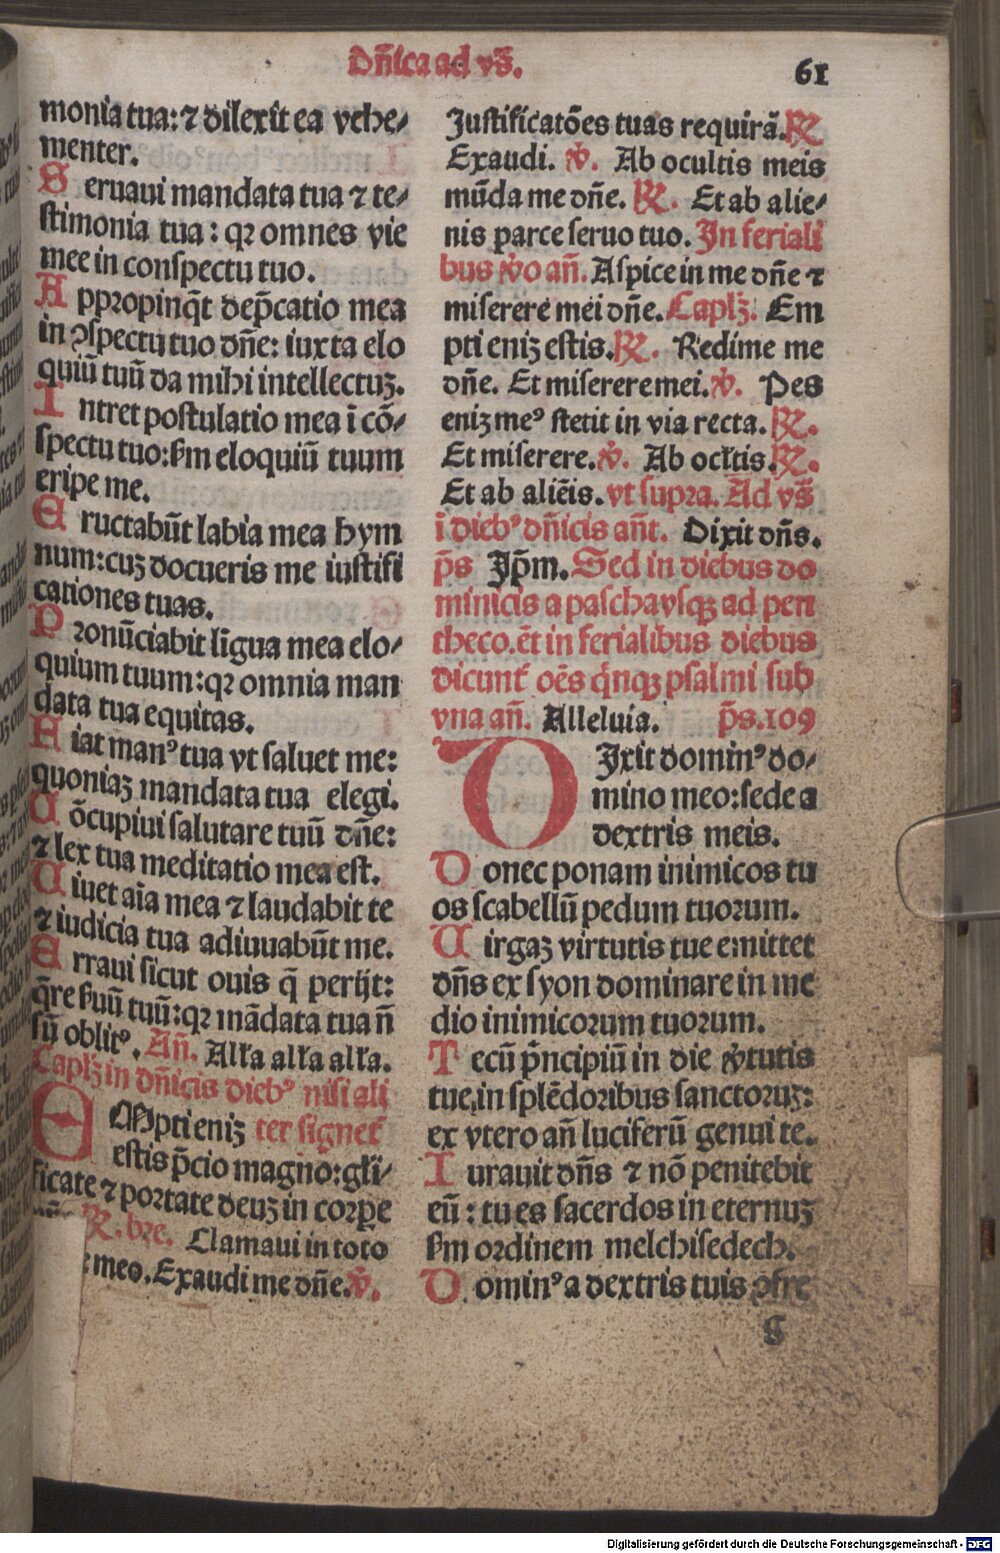 Dñica ad vs̃.
61
monia tua: ⁊ dilexit ea vehe/
menter.
S eruaui mandata tua ⁊ te/
stimonia tua: qꝛ omnes vie
mee in conspectu tuo.
A ppropinq̃t dep̃catio mea
in ꝯspectu tuo dñe: iuxta elo
quiũ tuũ da mihi intellectuꝫ.
I ntret postulatio mea ĩ cõ/
spectu tuo: ẞm eloquiũ tuum
eripe me.
E ructabũt labia mea hym
num: cuꝫ docueris me iustifi
cationes tuas.
P ronũciabit lĩgua mea elo/
quium tuum: qꝛ omnia man
data tua equitas.
F iat manꝰ tua vt saluet me:
quoniaꝫ mandata tua elegi.
C õcupiui salutare tuũ dñe:
⁊ lex tua meditatio mea est.
U iuet aĩa mea ⁊ laudabit te
⁊ iudicia tua adiuuabũt me.
E rraui sicut ouis q̃ perijt:
q̃re ẞuũ tuũ: qꝛ mãdata tua ñ
sũ oblitꝰ. Añ. Alła alła alła.
Caplꝫ in dñicis diebꝰ nisi ali
EMpti eniꝫ ter signet᷑
estis p̃cio magno: gl̃i/
ficate ⁊ portate deuꝫ in corpe
℟. bre. Clamaui in toto
meo. Exaudi me dñe. ℣.
Justificatões tuas requirã. ℟
Exaudi. ℣. Ab ocultis meis
mũda me dñe. ℟. Et ab alie/
nis parce seruo tuo. In feriali
bus ℣o añ. Aspice in me dñe ⁊
miserere mei dñe. Caplꝫ: Em
pti eniꝫ estis. ℟. Redime me
dñe. Et miserere mei. ℣. Pes
eniꝫ meꝰ stetit in via recta. ℟.
Et miserere. ℣. Ab ocłtis. ℟.
Et ab aliẽis. vt supra. Ad vs̃
ĩ diebꝰ dñicis añt. Dixit dñs.
p̃s Jp̃m. Sed in diebus do
minicis a pascha vsqꝫ ad pen
theco. ẽt in ferialibus diebus
dicunt᷑ oẽs q̃nqꝫ psalmi sub
vna añ. Alleluia. p̃s. 109
DJxit dominꝰ do/
mino meo: sede a
dextris meis.
D onec ponam inimicos tu
os scabellũ pedum tuorum.
U irgaꝫ virtutis tue emittet
dñs ex syon dominare in me
dio inimicorum tuorum.
T ecũ p̃ncipiũ in die ℣tutis
tue, in splẽdoribus sanctoruꝫ:
ex vtero añ luciferũ genui te.
I urauit dñs ⁊ nõ penitebit
eũ: tu es sacerdos in eternuꝫ
ẞm ordinem melchisedech.
D ominꝰ a dextris tuis ꝯfre
g
Digitalisierung gefördert durch die Deutsche Forschungsgemeinschaft - DFG